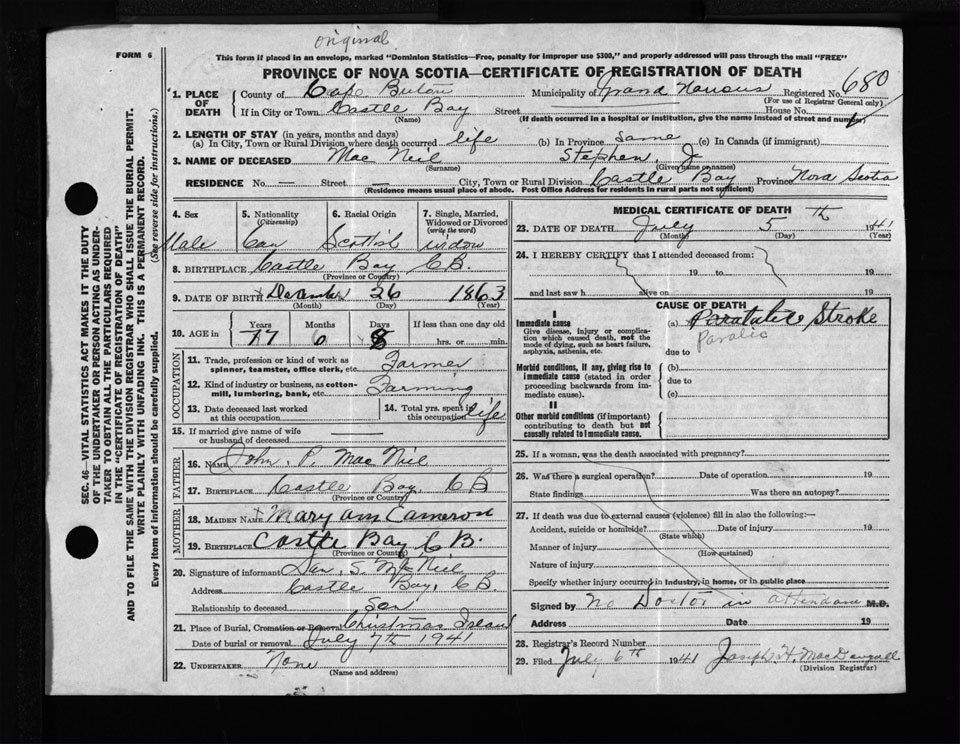 original
FORM 6
This form if placed in an envelope, marked "Dominion Statistics—Free, penalty for improper use $300," and properly addressed will pass through the mail "FREE"
PROVINCE OF NOVA SCOTIA—CERTIFICATE OF REGISTRATION OF DEATH
SEC. 46—VITAL STATISTICS ACT MAKES IT THE DUTY
OF THE UNDERTAKER OR PERSON ACTING AS UNDER-
TAKER TO OBTAIN ALL THE PARTICULARS REQUIRED
IN THE "CERTIFICATE OF REGISTRATION OF DEATH"
AND TO FILE THE SAME WITH THE DIVISION REGISTRAR WHO SHALL ISSUE THE BURIAL PERMIT.
WRITE PLAINLY WITH UNFADING INK. THIS IS A PERMANENT RECORD.
Every item of information should be carefully supplied. (See reverse side for instructions.)
1. PLACE OF DEATH County of Cape Breton Municipality of Grand Narrows Registered No. 680
(For use of Registrar General only)
If in City or Town Castle Bay Street House No.
(Name) (If death occurred in a hospital or institution, give the name instead of street and number)
2. LENGTH OF STAY (in years, months and days)
(a) In City, Town or Rural Division where death occurred life (b) In Province Same (c) In Canada (if immigrant)
3. NAME OF DECEASED Mac Neil Stephen, J
(Surname) (Given name or names)
RESIDENCE No. — Street — City, Town or Rural Division Castle Bay Province Nova Scotia
(Residence means usual place of abode. Post Office Address for residents in rural parts not sufficient)
4. Sex 5. Nationality (Citizenship) 6. Racial Origin 7. Single, Married, Widowed or Divorced (write the word)
Male Can Scottish widow
8. BIRTHPLACE Castle Bay C.B.
(Province or Country)
9. DATE OF BIRTH December 26 1863
(Month) (Day) (Year)
10. AGE in Years Months Days If less than one day old
77 6 8 hrs. or min.
OCCUPATION
11. Trade, profession or kind of work as spinner, teamster, office clerk, etc. Farmer
12. Kind of industry or business, as cotton-mill, lumbering, bank, etc. Farming
13. Date deceased last worked at this occupation 14. Total yrs. spent in this occupation life
15. If married give name of wife or husband of deceased
FATHER
16. NAME John. P. Mac Niel
17. BIRTHPLACE Castle Bay, C B
(Province or Country)
MOTHER
18. MAIDEN NAME Mary ann Cameron
19. BIRTHPLACE Castle Bay C B.
(Province or Country)
20. Signature of informant Dan. S. McNiel
Address Castle Bay, C B
Relationship to deceased Son
21. Place of Burial, Cremation or Removal Christmas Island
Date of burial or removal July 7th 1941
22. UNDERTAKER None
(Name and address)
MEDICAL CERTIFICATE OF DEATH
23. DATE OF DEATH July 5th 1941
(Month) (Day) (Year)
24. I HEREBY CERTIFY that I attended deceased from:
19 to 19
and last saw h alive on 19
CAUSE OF DEATH
I
Immediate cause
Give disease, injury or complication which caused death, not the mode of dying, such as heart failure, asphyxia, asthenia, etc.
(a) Stroke
due to
Morbid conditions, if any, giving rise to immediate cause (stated in order proceeding backwards from immediate cause).
(b)
due to
(c)
II
Other morbid conditions (if important) contributing to death but not causally related to immediate cause.
25. If a woman, was the death associated with pregnancy?
26. Was there a surgical operation? Date of operation 19
State findings Was there an autopsy?
27. If death was due to external causes (violence) fill in also the following:—
Accident, suicide or homicide? Date of injury 19
(State which)
Manner of injury
(How sustained)
Nature of injury
Specify whether injury occurred in industry, in home, or in public place
Signed by no Doctor in attendance M.D.
Address Date 19
28. Registrar's Record Number
29. Filed July 6th 1941 Joseph H. MacDougall
(Division Registrar)